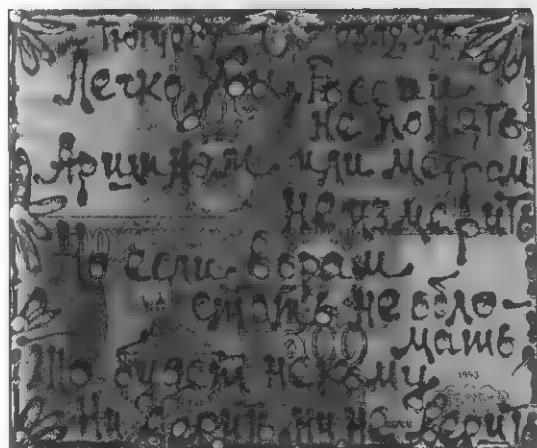 Тютчеву 05.12.93
Легко Умом Россию
не понять
Аршином или метром
не измерить
Но если ворам
стать не обло-
мать
То будет некому
1943
Ни верить, ни не верить